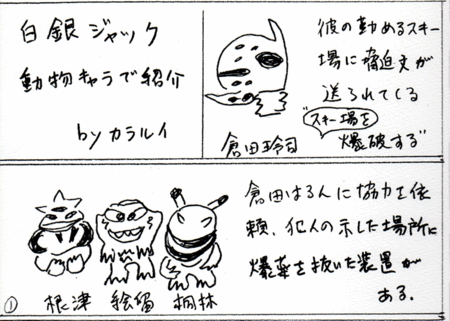 白銀ジャック
動物キャラで紹介
by カラルイ
彼の勤めるスキー
場に脅迫文が
送られてくる
"スキー場を
爆破する"
倉田玲司
倉田は3人に協力を依
頼、犯人の示した場所に
爆薬を抜いた装置が
ある.
根津 絵留 桐林
①